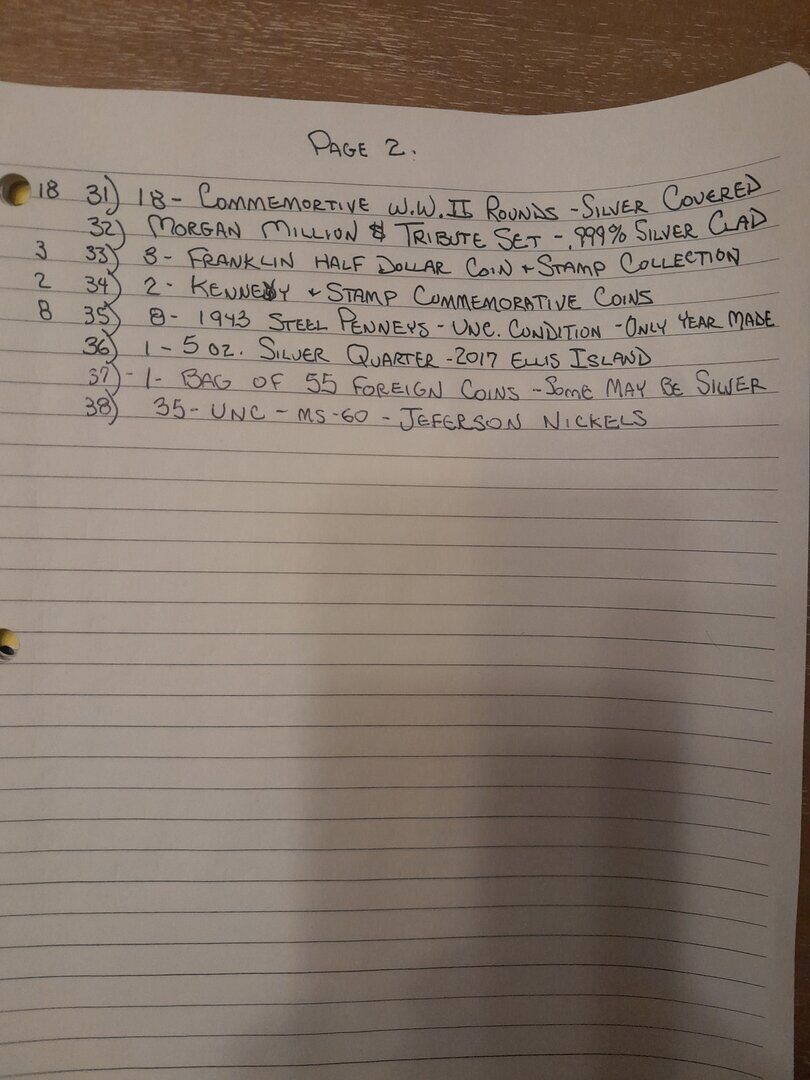 PAGE 2.
18 31) 18 - COMMEMORTIVE W.W.II ROUNDS - SILVER COVERED
32) MORGAN MILLION $ TRIBUTE SET - .999% SILVER CLAD
3 33) 3 - FRANKLIN HALF DOLLAR COIN + STAMP COLLECTION
2 34) 2 - KENNEDY + STAMP COMMEMORATIVE COINS
8 35) 8 - 1943 STEEL PENNEYS - UNC. CONDITION - ONLY YEAR MADE
36) 1 - 5 OZ. SILVER QUARTER - 2017 ELLIS ISLAND
37) - 1 - BAG OF 55 FOREIGN COINS - SOME MAY BE SILVER
38) 35 - UNC - MS-60 - JEFERSON NICKELS